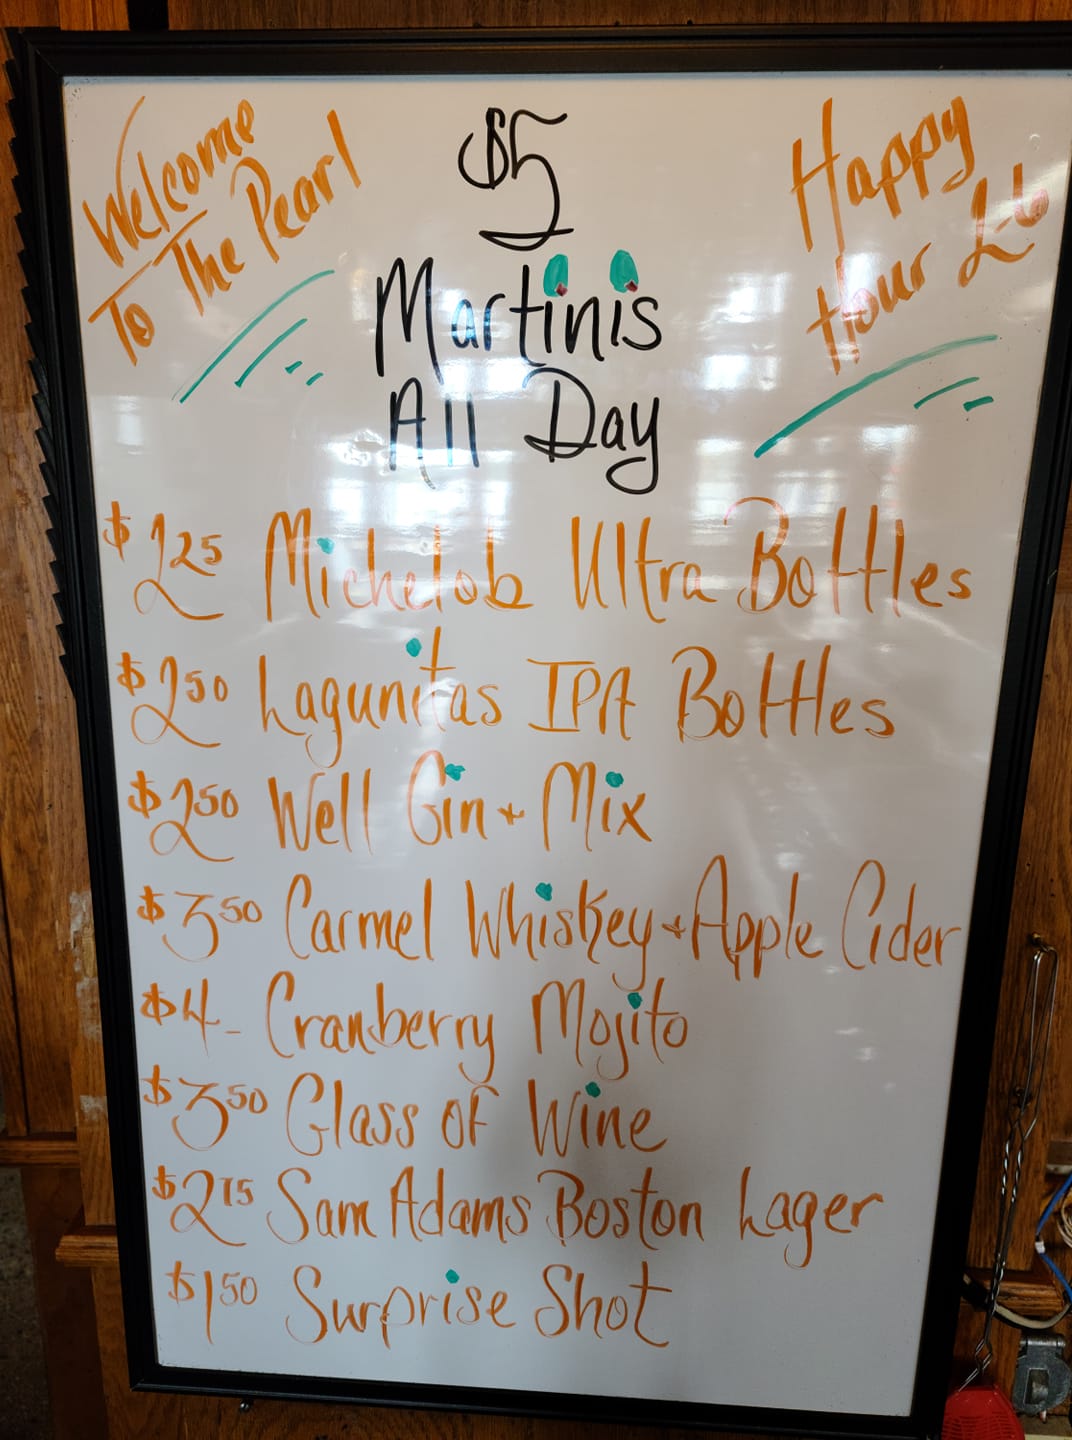 Welcome
To The Pearl
$5
Martinis
All Day
Happy
Hour 2-6
$2.25 Michelob Ultra Bottles
$2.50 Lagunitas IPA Bottles
$2.50 Well Gin + Mix
$3.50 Carmel Whiskey + Apple Cider
$4- Cranberry Mojito
$3.50 Glass of Wine
$2.75 Sam Adams Boston Lager
$1.50 Surprise Shot